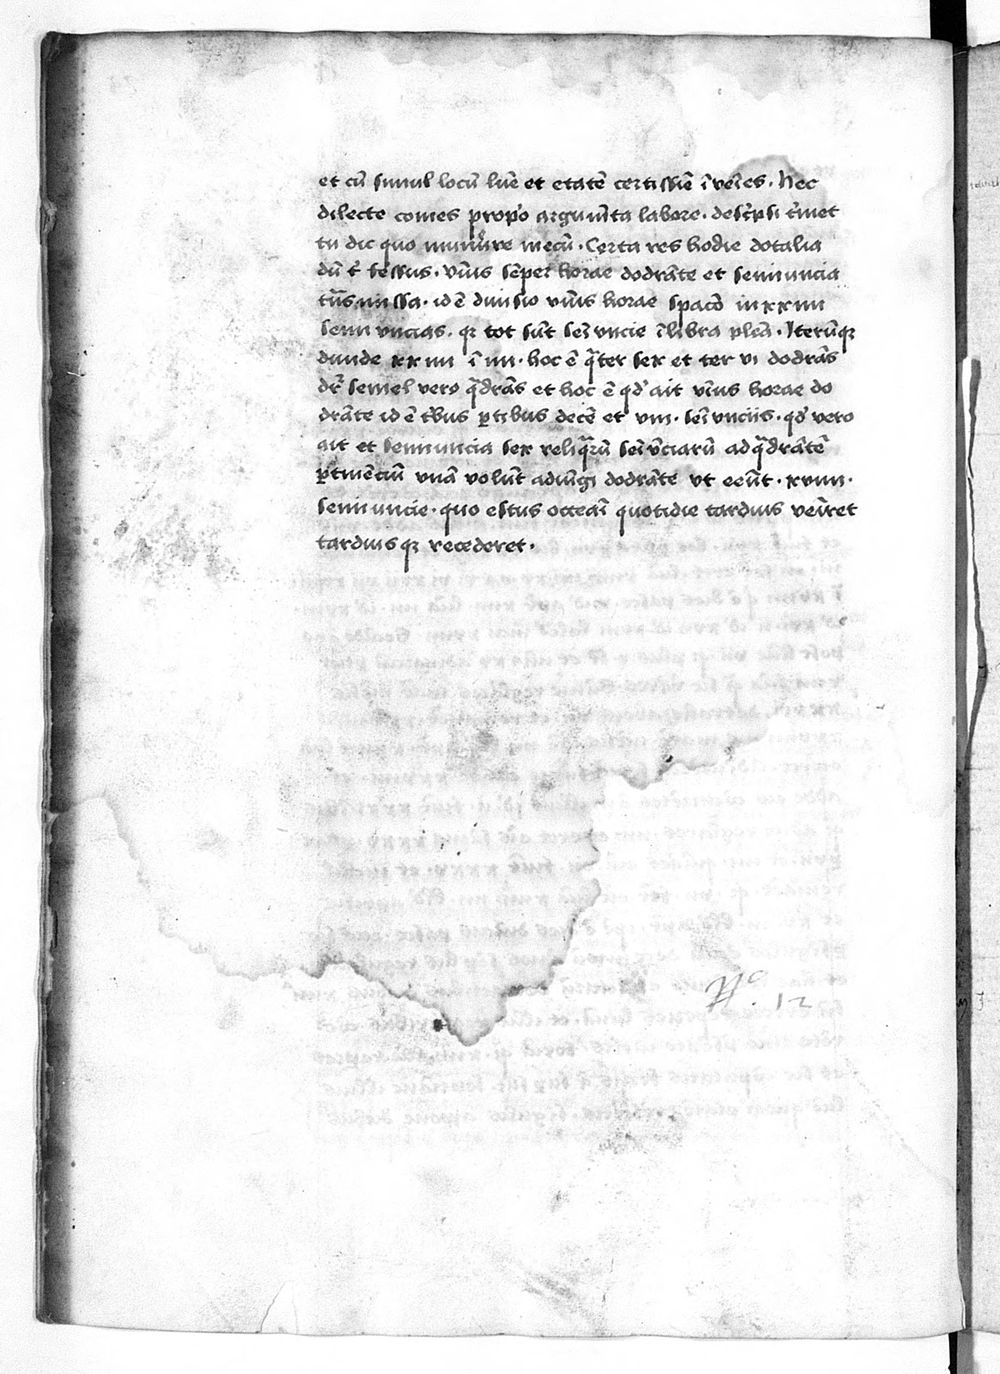 et cū simul locū lūe et etatē certissīe īveīes. Hec
dilecte comes prop̄o argum̄ta labore. descͥpsi tͥmet
tu dic quo munūre mecū. Certa res hodie dotalia
dū t̄ fessus. vniͥs sēper horae dodrāte et semiuncia
tm̄s missa. id ē diuisio vniͥs horae spacō in xxiiii
semi vncias. qꝫ tot sūt seī vncie ī libra plēa. Iterūqꝫ
diuide xxiiii ī iiii. hoc ē qͣter sex et ter vi dodrās
dr̄ semel vero qͣdrās et hoc ē qd̓ ait vniͥs horae do
drāte id ē tͥbus ptibus decē et viii. seī vnciis. qd̓ vero
ait et semiuncia sex reliqͣrū seī vnciarū ad qͣdrātē
ꝑtinēciū vnā volūt adiūgi dodrāte vt eēnt. xviiii.
semi uncie. quo estus occeaī quotidie tardius veīret
tardius qꝫ recederet.
Nᵒ. 12